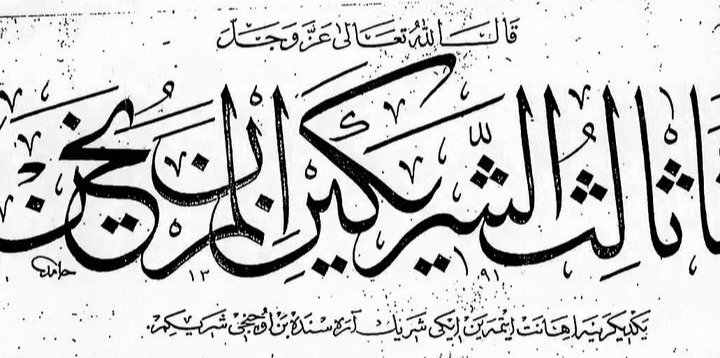 قَالَ اللهُ تَعَالَىٰ عَزَّ وَجَلَّ
نَا ثَالِثُ الشَّرِيكَيْنِ اِنْ لَمْ يَخُنْ
حامد ١٣ ٩١
يكديكرينه اهانت ايتمه ين ايكى شريك آره سنده بن اوچنجى شريكم.